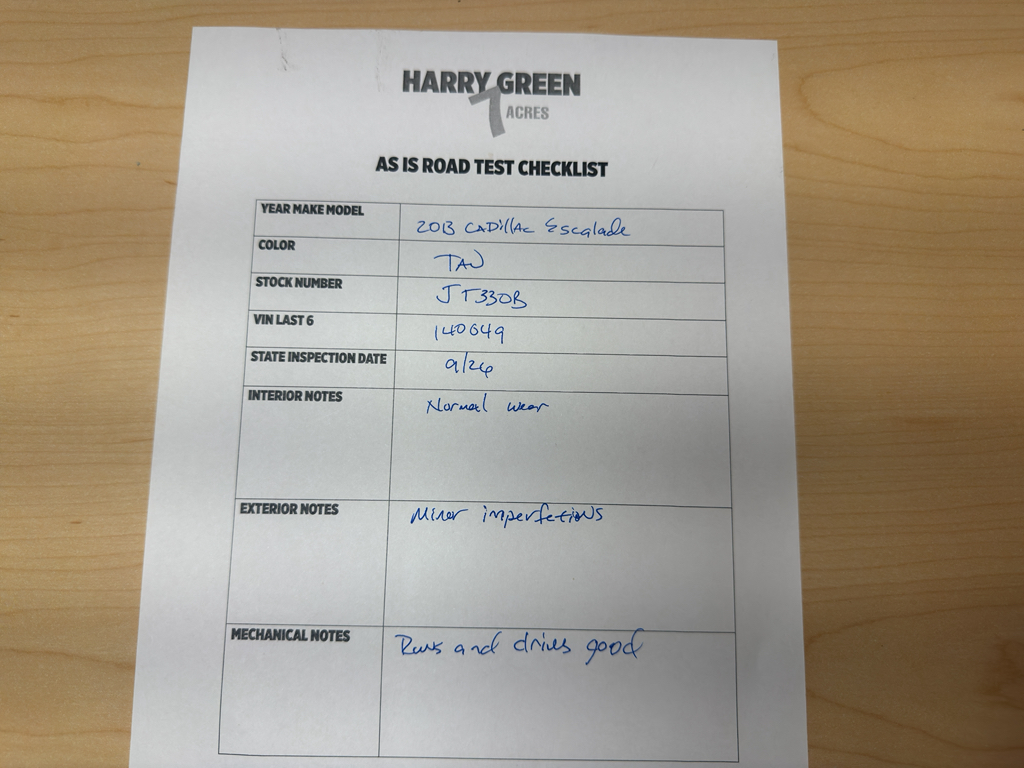 HARRY GREEN
7 ACRES
AS IS ROAD TEST CHECKLIST
YEAR MAKE MODEL 2013 CADillAC Escalade
COLOR TAN
STOCK NUMBER JT330B
VIN LAST 6 140049
STATE INSPECTION DATE 9/26
INTERIOR NOTES Normal wear
EXTERIOR NOTES Minor imperfetions
MECHANICAL NOTES Runs and drives good